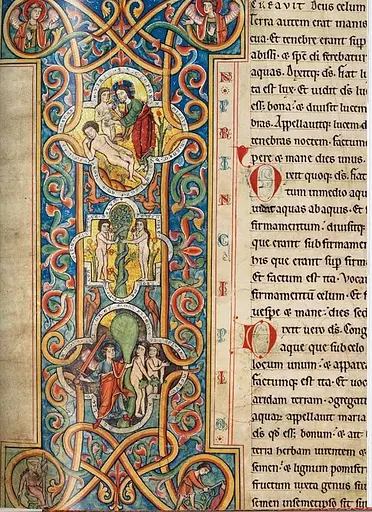 N PRINCIPIO
CREAVIT Deus celum
terra autem erat inanis
cua· Et tenebre erant sup
abissi· & sp̄s di ferebatur
aquas. Dixitq; ds. fiat lu
ta est lux· Et uidit ds lu
ess; bona· & diuisit lucem
bras. Appellauitq; lucem d
tenebras noctem. factumq
pere & mane dies unus.
Dixit quoq; ds. fiat
tum in medio aqu
uidat aquas ab aquis. Et f
firmamentum. diuisitq;
que erant sub firmamen
his que erant sup firm
Et factum est ita. Vocau
firmamentū celum. Et f
uespe & mane. dies sec
Dixit uero ds. Cong
aque que sub celo
locum unum. & appare
factumq; est ita. Et uoc
aridam terram. ogregati
aquarū appellauit maria
ds qd ess; bonum. & ait
terra herbam uirentem &
semen. & lignum pomifer
fructum iuxta genus su
semen in semetipso sit su